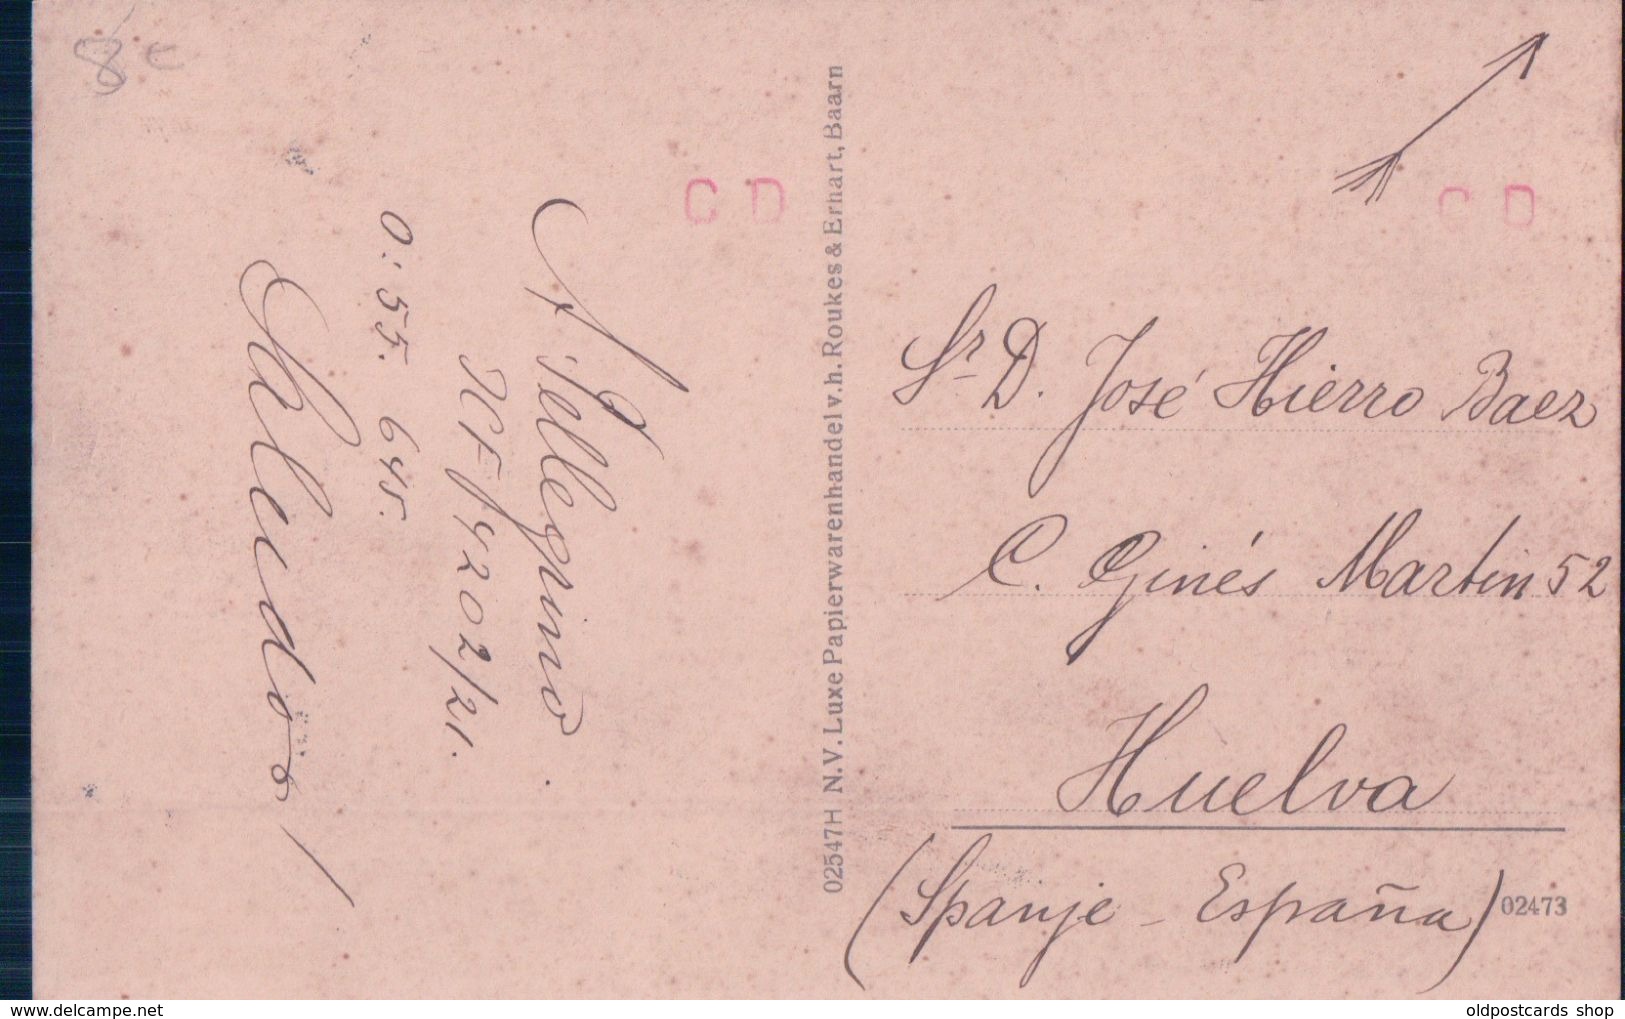 8 €
C D
C D
Saludos!
0:55. 645.
4202/21.
02547H N.V. Luxe Papierwarenhandel v.h. Roukes & Erhart, Baarn
Sr D. José Hierro Baez
C. Ginés Martin 52
Huelva
(Spanje - España)
02473
www.delcampe.net
oldpostcards shop